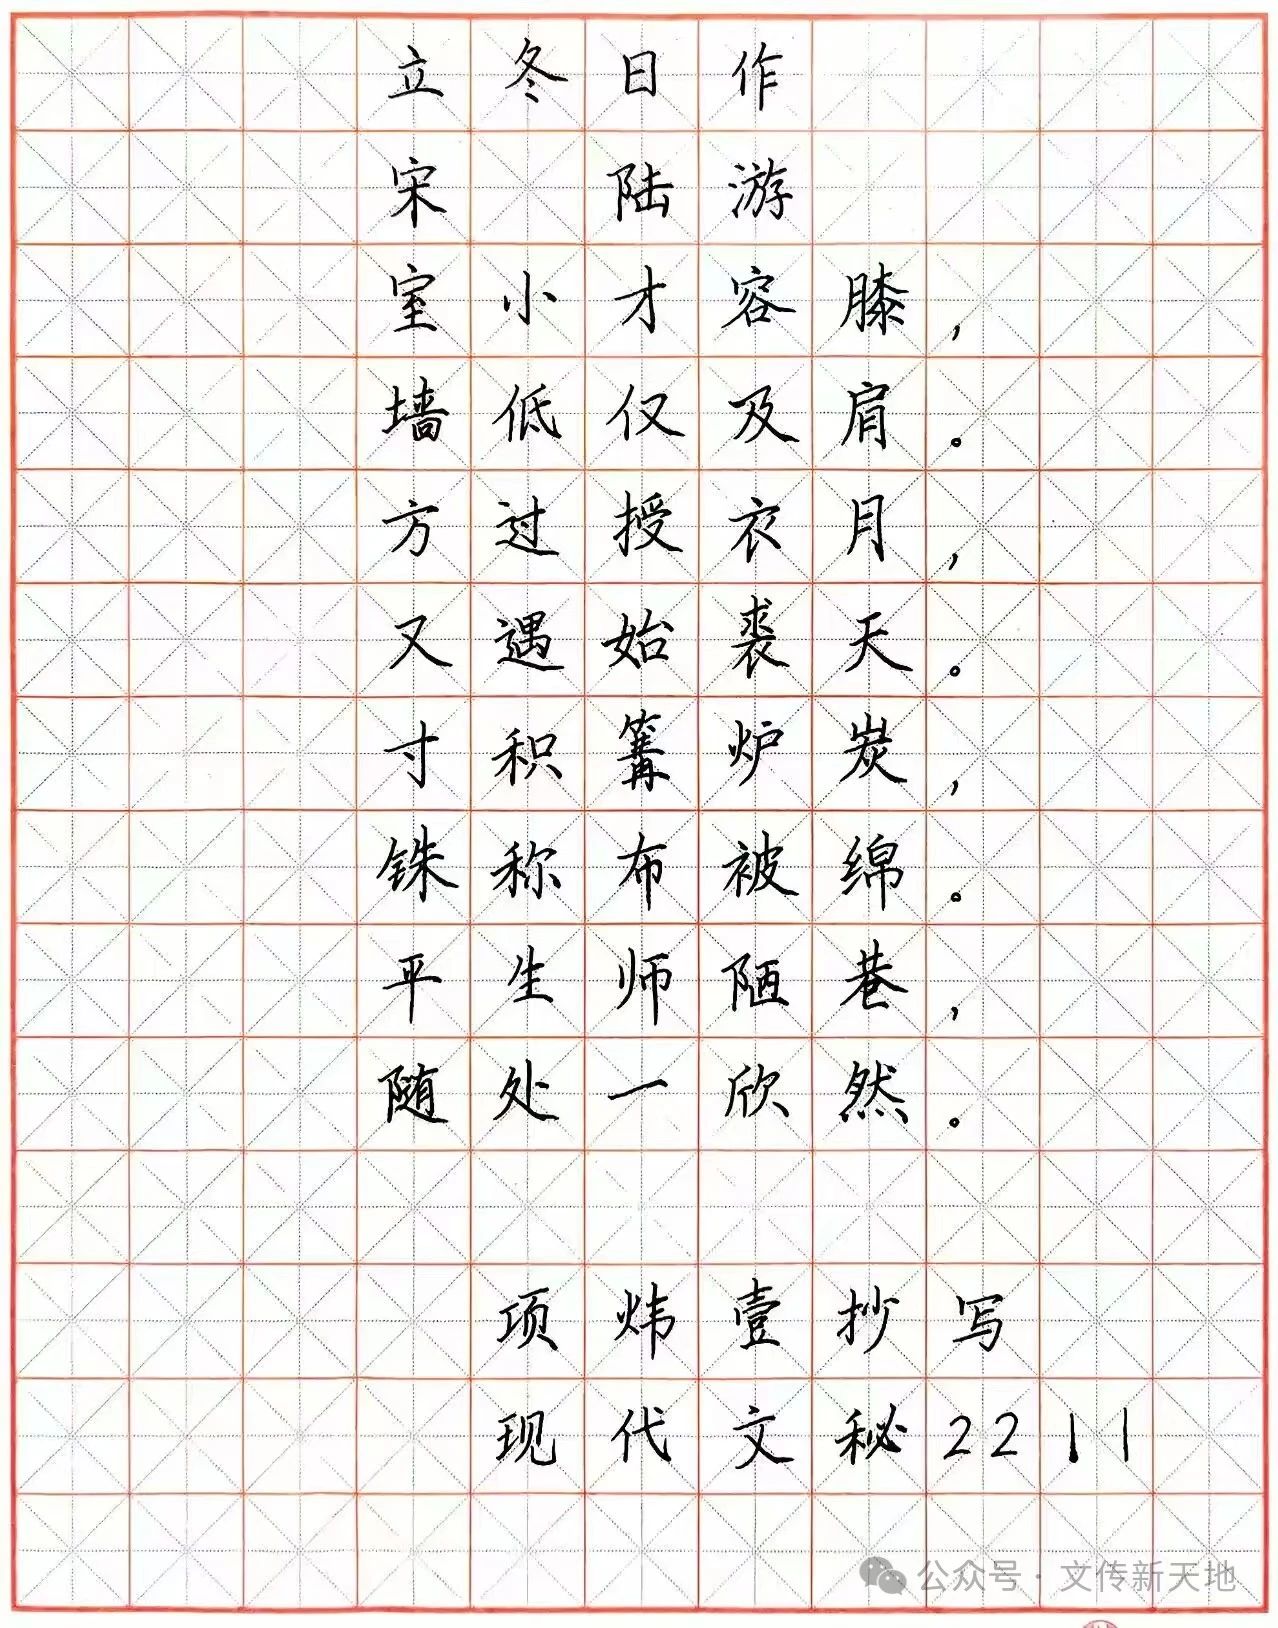 立冬日作
宋 陆游
室小才容膝，
墙低仅及肩。
方过授衣月，
又遇始裘天。
寸积篝炉炭，
铢称布被绵。
平生师陋巷，
随处一欣然。
项炜壹抄写
现代文秘2211
公众号·文传新天地